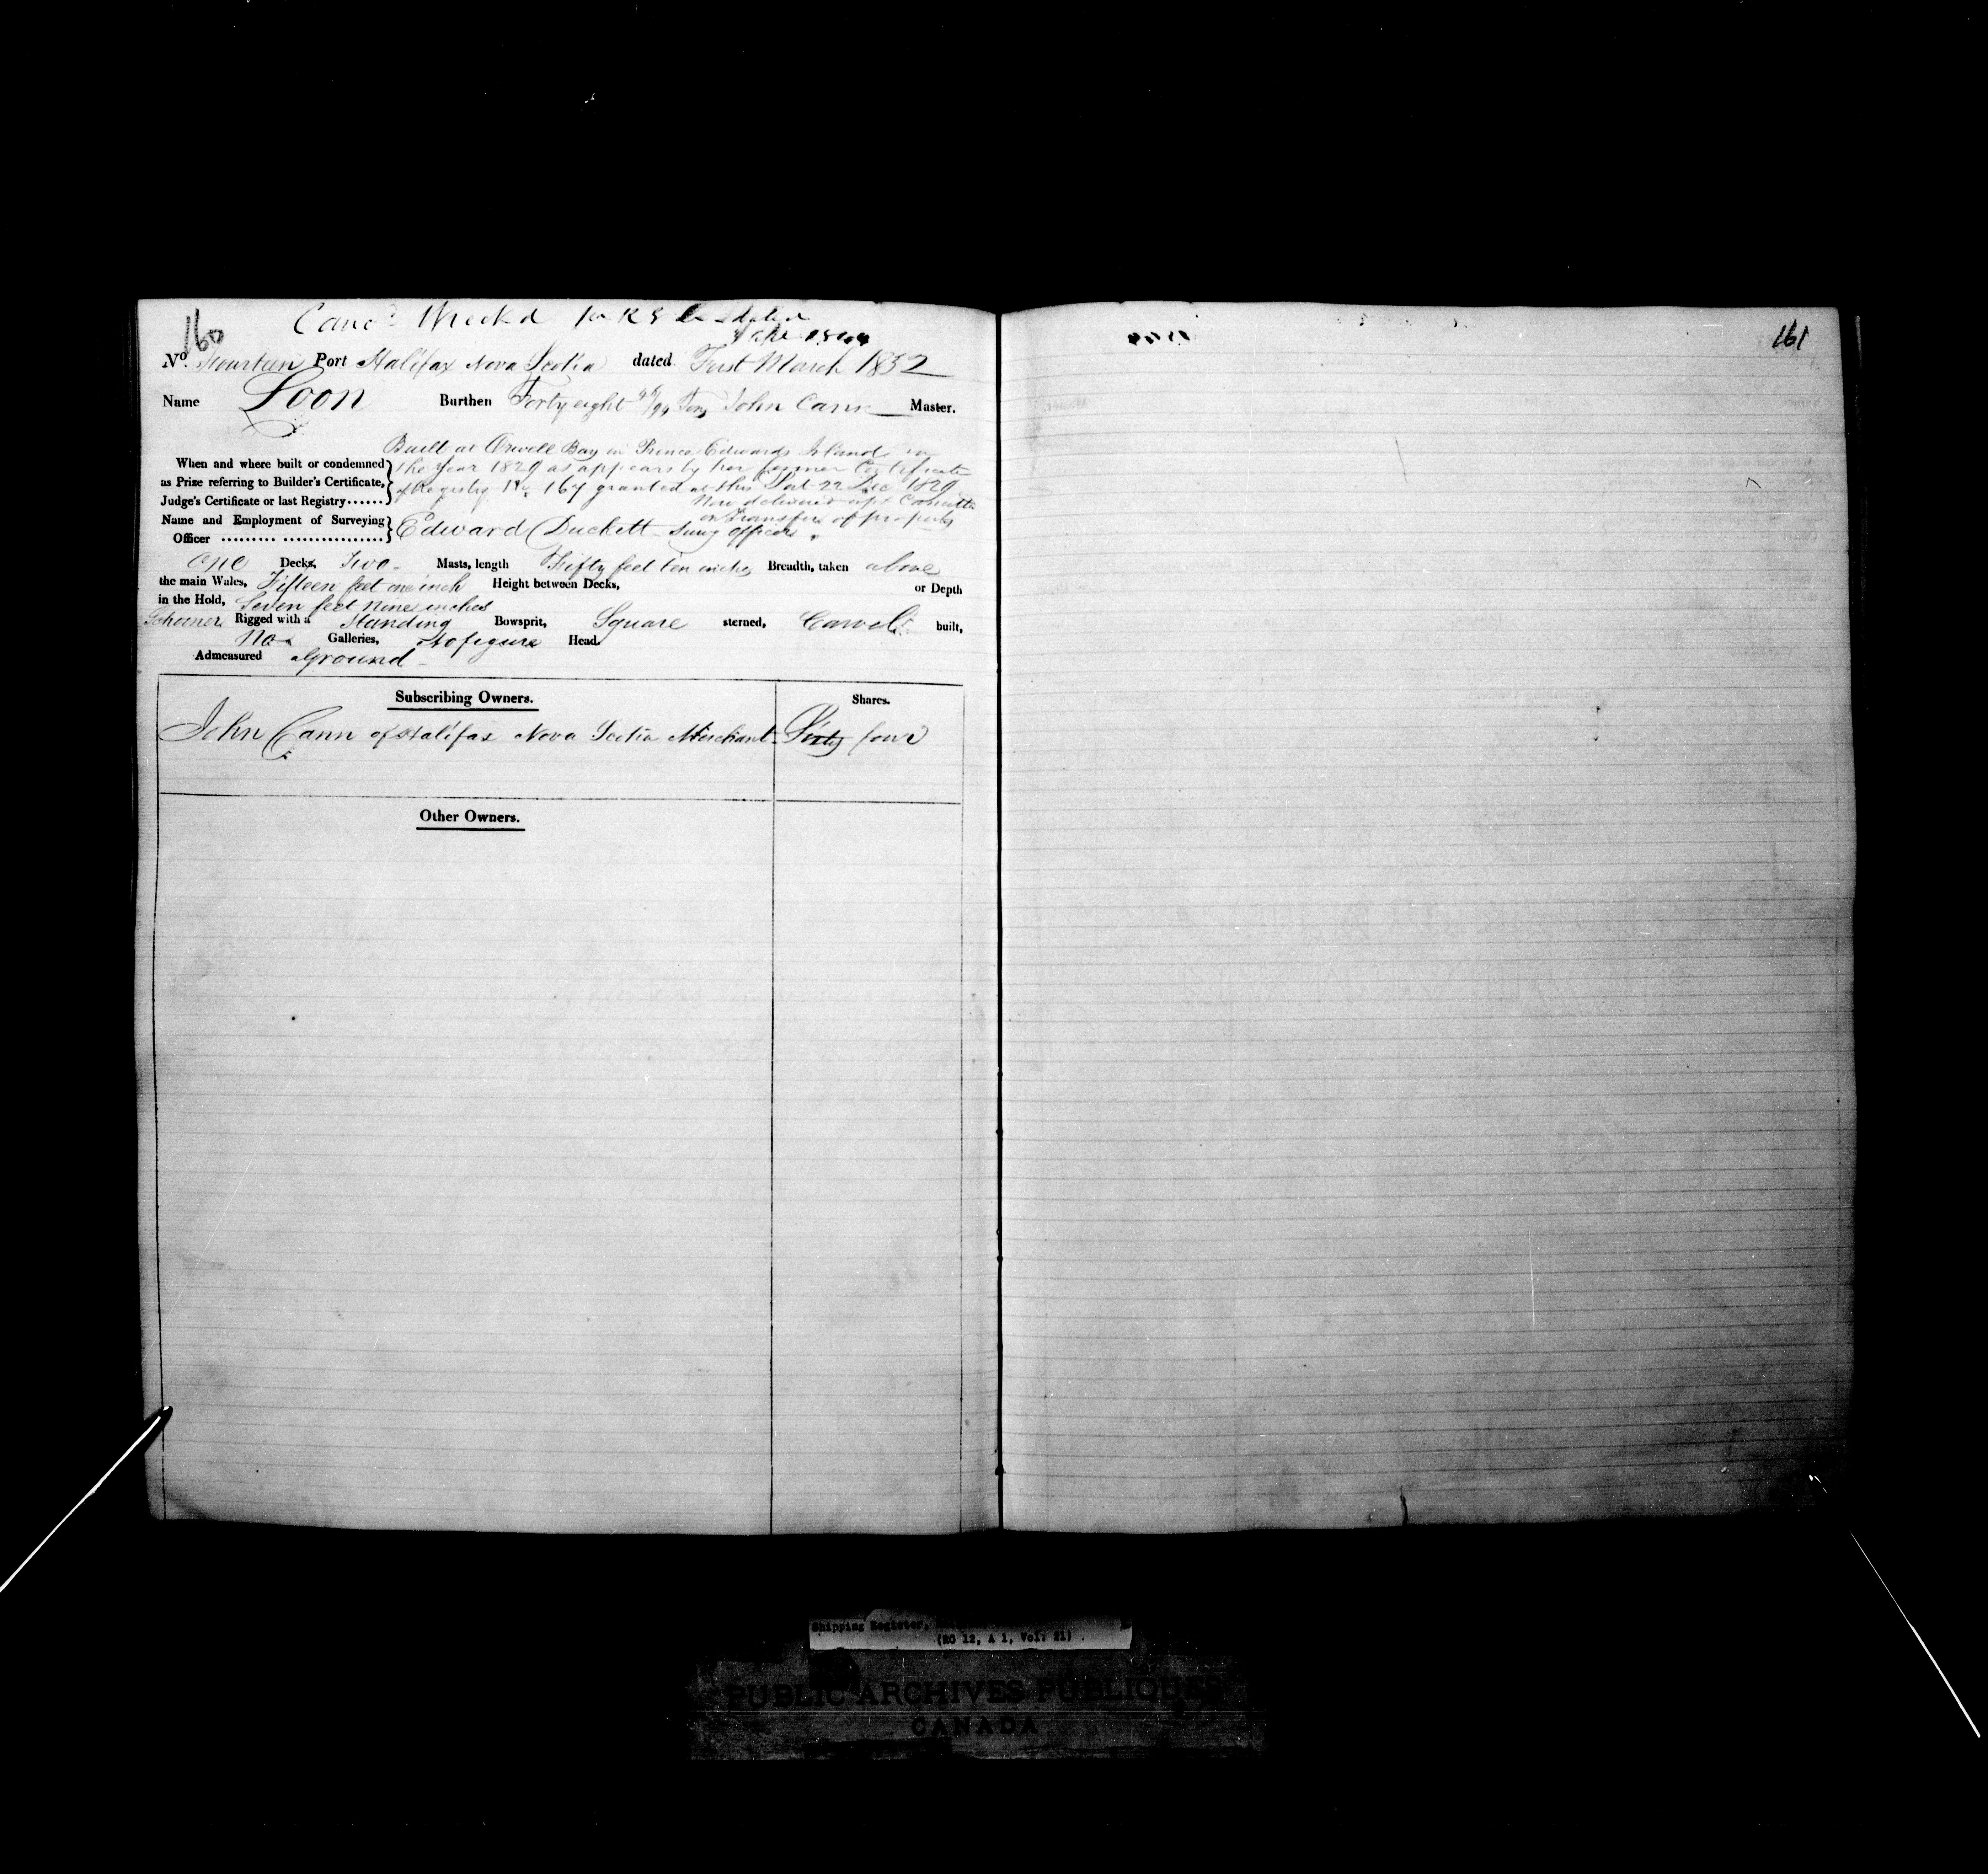 160
Canc'd Wreck'd
161
No. Fourteen Port Halifax Nova Scotia dated First March 1832
Name Loon Burthen Forty eight Tons John Cann Master.
Built at Orwell Bay in Prince Edwards Island in
When and where built or condemned the year 1829 as appears by her former Certificate
as Prize referring to Builder's Certificate, of Registry No. 167 granted at this Port 22 Dec 1829
Judge's Certificate or last Registry...... Now delivered up &
on transfer of property
Name and Employment of Surveying
Officer ......... ................ Edward Duckett Surv officer
One Decks, Two Masts, length Fifty feet ten inches Breadth, taken above
the main Wales, Fifteen feet one inch Height between Decks, or Depth
in the Hold, Seven feet Nine inches
Schooner Rigged with a Standing Bowsprit, Square sterned, Carvel built,
No Galleries, No figure Head.
Admeasured aGround
Subscribing Owners. Shares.
John Cann of Halifax Nova Scotia Merchant Sixty four
Other Owners.
Shipping Register,
(RG 12, A 1, Vol. 21)
PUBLIC ARCHIVES PUBLIQUES
CANADA